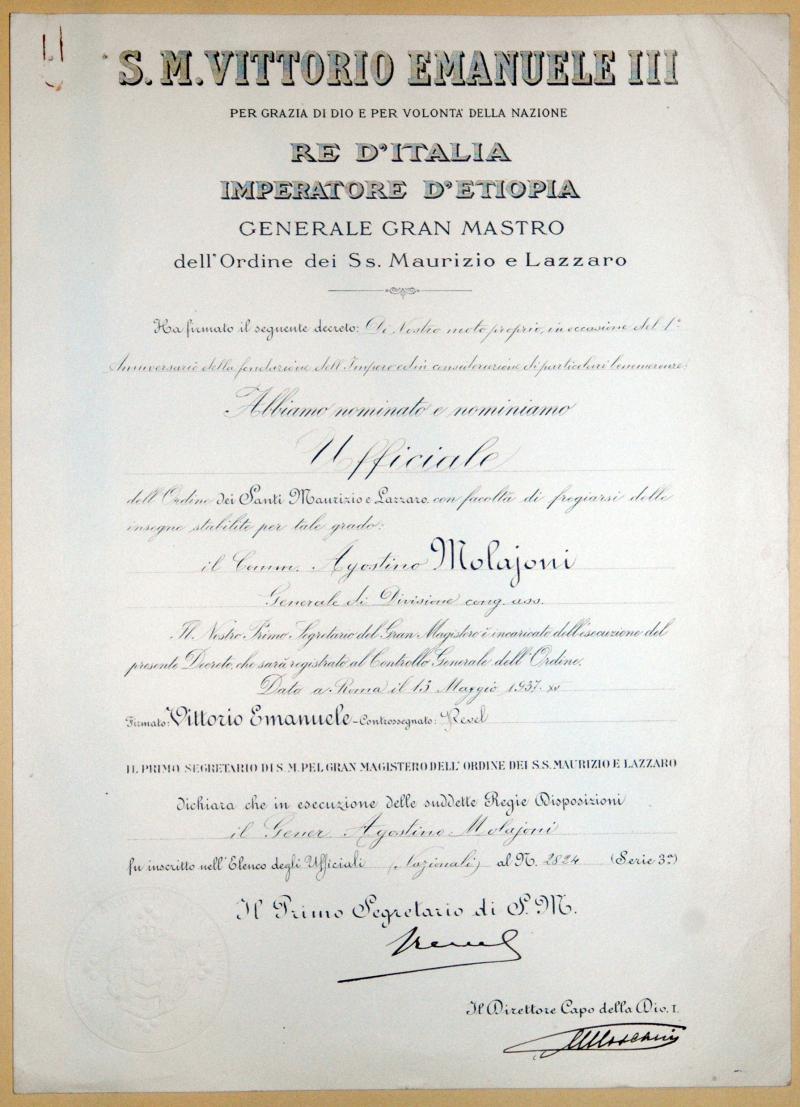 S. M. VITTORIO EMANUELE III
PER GRAZIA DI DIO E PER VOLONTA' DELLA NAZIONE
RE D'ITALIA
IMPERATORE D'ETIOPIA
GENERALE GRAN MASTRO
dell'Ordine dei Ss. Maurizio e Lazzaro
Ha firmato il seguente decreto: Di Nostro moto proprio, in occasione del 1°
Anniversario della fondazione dell'Impero ed in considerazione di particolari benemerenze:
Abbiamo nominato e nominiamo
Ufficiale
dell'Ordine dei Santi Maurizio e Lazzaro, con facoltà di fregiarsi delle
insegne stabilite per tale grado:
il Comm. Agostino Molajoni
Generale di Divisione cong. ass.
Il Nostro Primo Segretario del Gran Magistero è incaricato dell'esecuzione del
presente Decreto, che sarà registrato al Controllo Generale dell'Ordine.
Dato a Roma il 13 Maggio 1937. XV
Firmato: Vittorio Emanuele - Controssegnato: Revel
IL PRIMO SEGRETARIO DI S. M. PEL GRAN MAGISTERO DELL' ORDINE DEI S.S. MAURIZIO E LAZZARO
dichiara che in esecuzione delle suddette Regie Disposizioni
il Gener. Agostino Molajoni
fu inscritto nell'Elenco degli Ufficiali (Nazionali) al N. 2824 (Serie 3ª)
Il Primo Segretario di S. M.
Revel
Il Direttore Capo della Div. I.